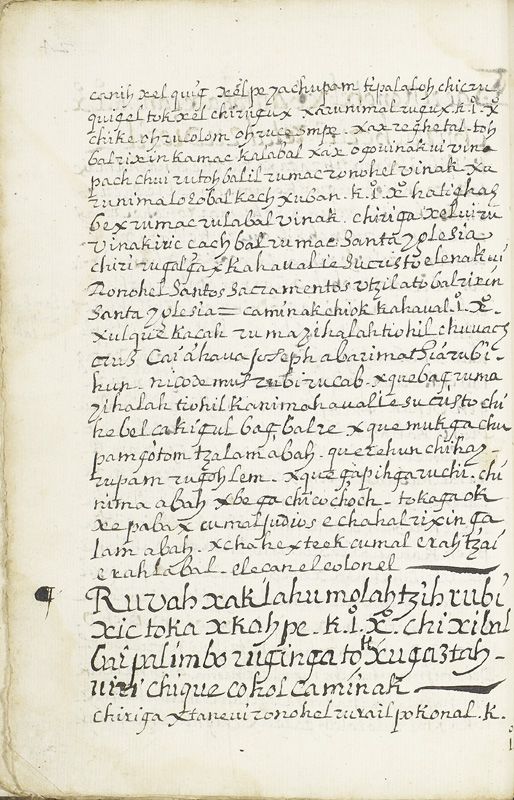 canih xel quiq xol pe yachupam tipalaloh chicru
quigel tok xel chirugux xarunimal rugux. k. i. x̊
chike oh rucolom oh ruce smpe. xax reghetal. toh
balrixin kamac kalabal xax ogouinak ui vina
pach chui rutohbalil rumac ronohel vinak xa
runimal ologobal kech xuban. k. i. x̊. hatighaz
bex rumac rulabal vinak. chiriga xel ui ru
vinakiric cachbal rumac Santa yglesia
chiri rugalgax kahaual iesucristo elenak ui
Ronohel Santos Sacramentos vtzilatobal rixin
Santa yglesia = caminak chiok kahaual. i. x̊.
xulque kacah ruma zihalah tiohil chuuach
crus Cai ahaua joseph abarimathia rubi.
hun. nicodemus rubi rucab. xquebag ruma
zihalah tiohil kanimahaual iesucristo chi
hebel cakigul bag, balre xquemukga chu
pam gotom tzalam abah. querehun chikay.
rupam rughlem. xquegapihga ruchi. chi
nima abah xbega chicochoch. tokaga oti
xepabax cumal judios echahal rixin ga
lam abah. xchahex teek cumal erahtzai
erahlabal. elecanel colonel
¶ Ruvah xaklahu molah tzih rubi
xic toka xkah pe. k. i. x̊. chi xibal
bai palimbo ruginga tok xugaztah.
uiri chique cohol caminak
chiriga xtaneui ronohel rurail pokonal. k.
i